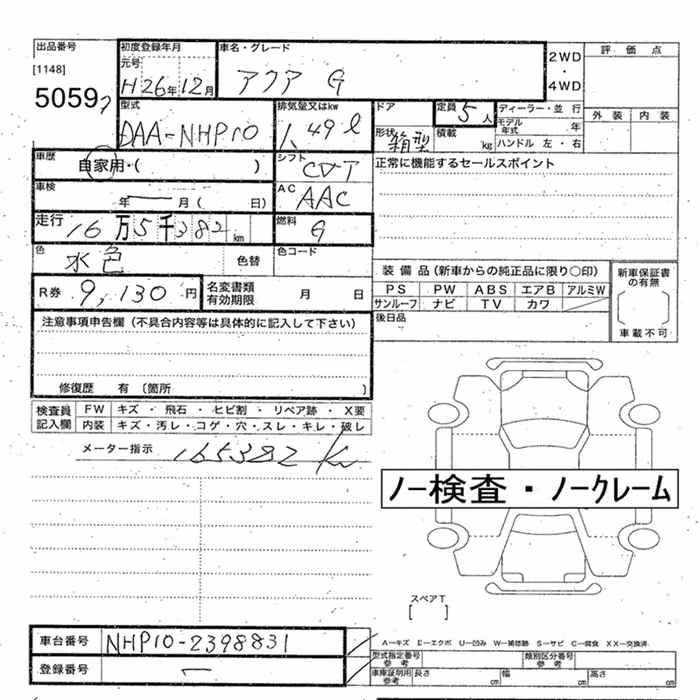 出品番号
[1148]
5059
初度登録年月
元号
H26年12月
車名・グレード
アクア G
2WD
・
4WD
評価点
外装 内装
型式
DAA-NHP10
排気量又はkw
1.49ℓ
ドア
形状 箱型
定員 5人
積載 kg
ディーラー・並行
モデル年式 年
ハンドル 左・右
車歴
自家用・( )
シフト
CVT
正常に機能するセールスポイント
車検
年 ー 月 ( 日)
AC
AAC
走行
16万5千382km
燃料
G
色
水色
色替
色コード
R券 9,130円
名変書類
有効期限
月 日
装備品(新車からの純正品に限り〇印)
PS PW ABS エアB アルミW
サンルーフ ナビ TV カワ
新車保証書
の有無
〔 〕
車載不可
後日品
注意事項申告欄(不具合内容等は具体的に記入して下さい)
修復歴 有〔箇所 〕
検査員
記入欄
FW キズ・飛石・ヒビ割・リペア跡・X要
内装 キズ・汚レ・コゲ・穴・スレ・キレ・破レ
メーター指示
165382 Km
ノー検査・ノークレーム
スペアT
[ ]
車台番号 NHP10-2398831
登録番号 ー
A－キズ E－エクボ U－凹み W－補修跡 S－サビ C－腐食 XX－交換済
型式指定番号
参考
類別区分番号
参考
車庫証明用
参考
長さ cm 幅 cm 高さ cm